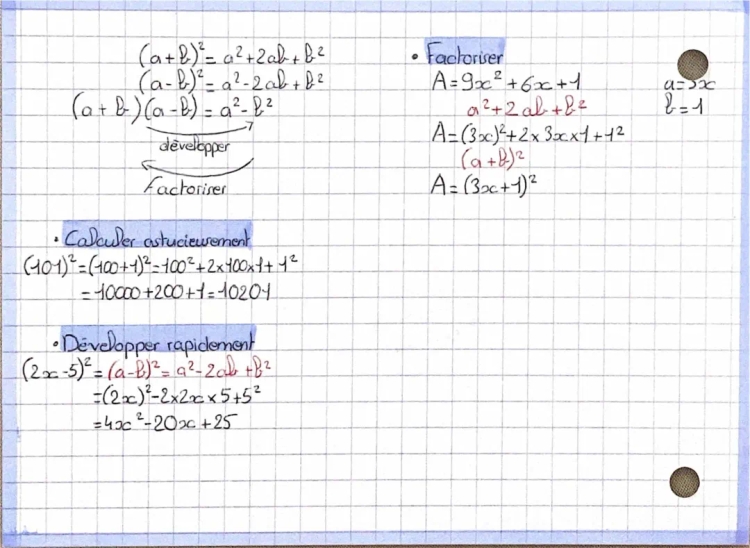 (a+b)²=a²+2ab+b²
(a-b)²=a²-2ab+b²
(a+b)(a-b)=a²-b²
développer
Factoriser
• Calculer astucieusement
(101)²=(100+1)²=100²+2x100x1+1²
=10000+200+1=10201
• Développer rapidement
(2x-5)²=(a-b)²=a²-2ab+b²
=(2x)²-2x2x x5+5²
=4x²-20x+25
• Factoriser
A=9x²+6x+1
a=3x
a²+2ab+b²
b=1
A=(3x)²+2x3x x1+1²
(a+b)²
A=(3x+1)²